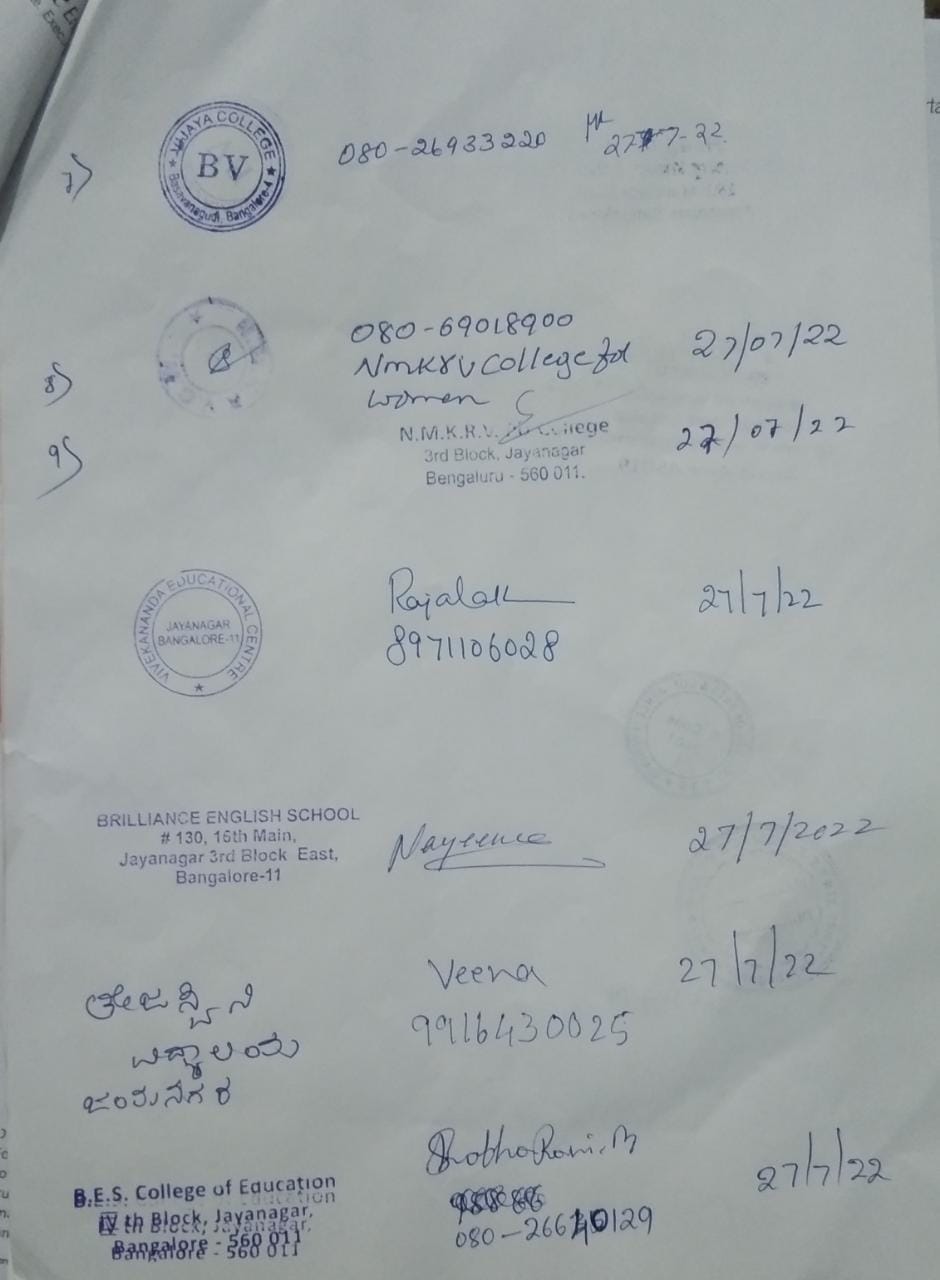 7)
VIJAYA COLLEGE
BV
Basavanagudi, Bangalore-4
080-26933220
27-7-22
8)
080-69018900
NMKRV College for
women
27/07/22
9)
N.M.K.R.V. PU College
3rd Block, Jayanagar
Bengaluru - 560 011.
27/07/22
VIVEKANANDA EDUCATIONAL CENTRE
JAYANAGAR
BANGALORE-11
Rajalak
8971106028
27/7/22
BRILLIANCE ENGLISH SCHOOL
# 130, 16th Main,
Jayanagar 3rd Block East,
Bangalore-11
27/7/2022
ತೇಜಸ್ವಿನಿ
ವಿದ್ಯಾಲಯ
ಜಯನಗರ
Veena
9916430025
27/7/22
B.E.S. College of Education
IV th Block, Jayanagar,
Bangalore - 560 011
Shobha Rani. M
080-26610129
27/7/22